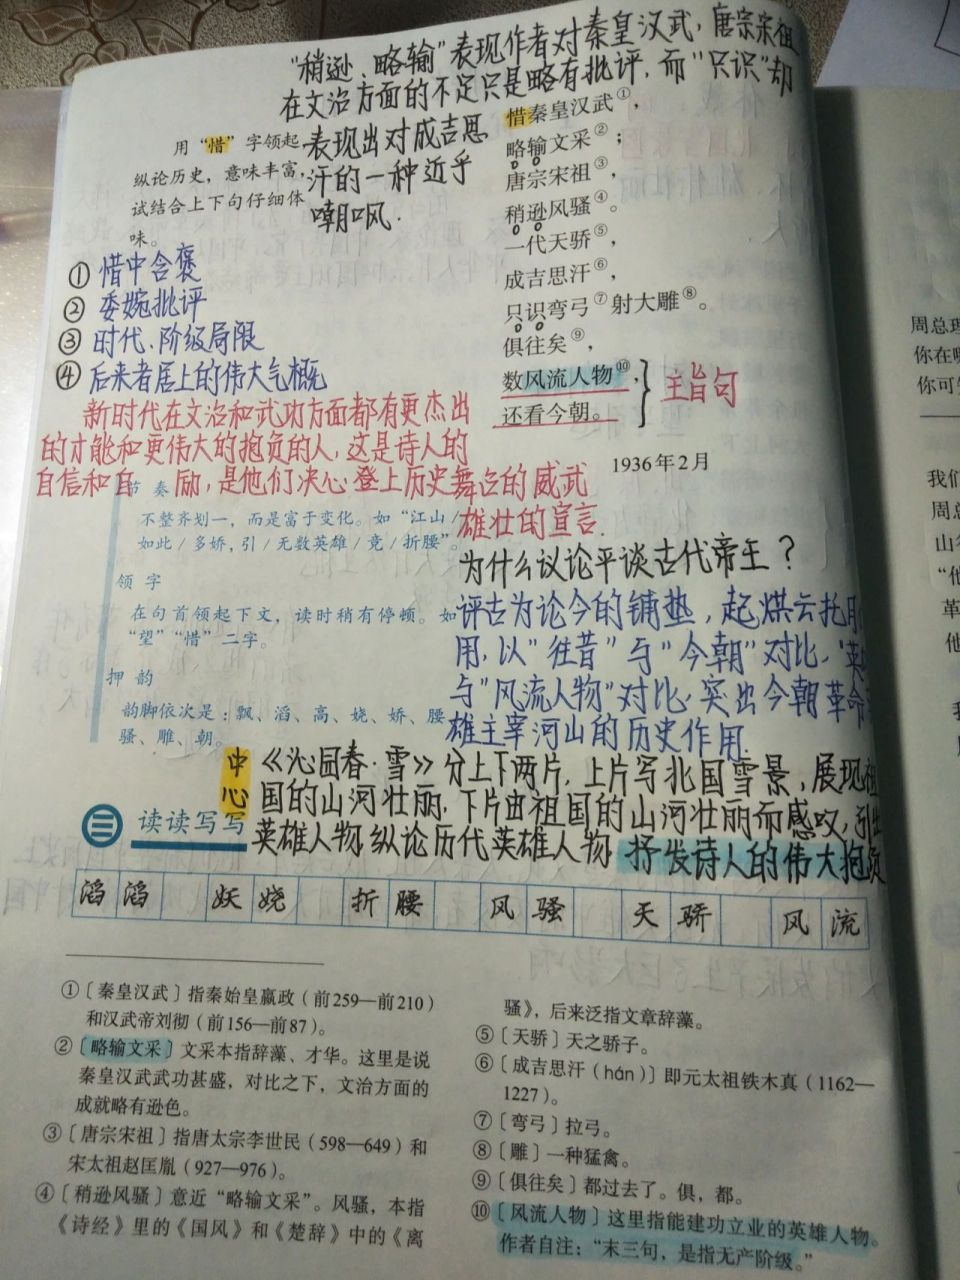 “稍逊、略输”表现作者对秦皇汉武，唐宗宋祖
在文治方面的不足只是略有批评，而“只识”却
表现出对成吉思
汗的一种近乎
嘲讽.
用“惜”字领起
纵论历史，意味丰富，
试结合上下句仔细体
味。
惜秦皇汉武①，
略输文采②；
唐宗宋祖③，
稍逊风骚④。
一代天骄⑤，
成吉思汗⑥，
只识弯弓⑦射大雕⑧。
俱往矣⑨，
数风流人物⑩，
还看今朝。
主旨句
1936年2月
①惜中含褒
②委婉批评
③时代.阶级局限
④后来者居上的伟大气概
新时代在文治和武功方面都有更杰出
的才能和更伟大的抱负的人，这是诗人的
自信和自励，是他们决心登上历史舞台的威武
雄壮的宣言.
节奏
不整齐划一，而是富于变化。如“江山/
如此/多娇，引/无数英雄/竞/折腰”。
领字
在句首领起下文，读时稍有停顿。如
“望”“惜”二字。
押韵
韵脚依次是：飘、滔、高、娆、娇、腰
骚、雕、朝。
为什么议论平谈古代帝王？
评古为论今的铺垫，起烘云托月
用，以“往昔”与“今朝”对比，“英
与“风流人物”对比，突出今朝革命
雄主宰河山的历史作用.
中心
《沁园春·雪》分上下两片，上片写北国雪景，展现祖
国的山河壮丽，下片由祖国的山河壮丽而感叹，引出
英雄人物.纵论历代英雄人物.抒发诗人的伟大抱负
三 读读写写
滔滔 妖娆 折腰 风骚 天骄 风流
①〔秦皇汉武〕指秦始皇嬴政（前259—前210）
和汉武帝刘彻（前156—前87）。
②〔略输文采〕文采本指辞藻、才华。这里是说
秦皇汉武武功甚盛，对比之下，文治方面的
成就略有逊色。
③〔唐宗宋祖〕指唐太宗李世民（598—649）和
宋太祖赵匡胤（927—976）。
④〔稍逊风骚〕意近“略输文采”。风骚，本指
《诗经》里的《国风》和《楚辞》中的《离
骚》，后来泛指文章辞藻。
⑤〔天骄〕天之骄子。
⑥〔成吉思汗（hán）〕即元太祖铁木真（1162—
1227）。
⑦〔弯弓〕拉弓。
⑧〔雕〕一种猛禽。
⑨〔俱往矣〕都过去了。俱，都。
⑩〔风流人物〕这里指能建功立业的英雄人物。
作者自注：“末三句，是指无产阶级。”
周总理
你在哪
你可知
我们
周总
山谷
“他
革
他